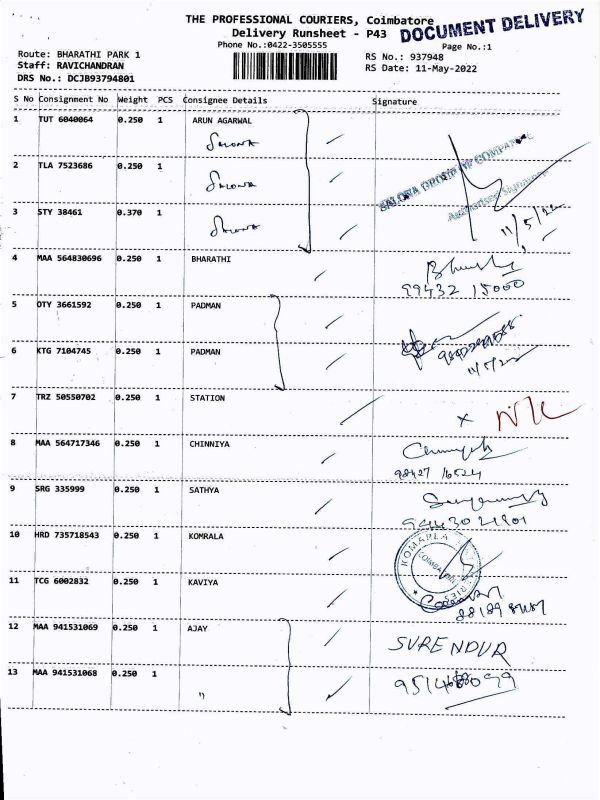 THE PROFESSIONAL COURIERS, Coimbatore
DOCUMENT DELIVERY
Delivery Runsheet - P43
Phone No.:0422-3505555
Page No.:1
Route: BHARATHI PARK 1
RS No.: 937948
Staff: RAVICHANDRAN
RS Date: 11-May-2022
DRS No.: DCJB93794801
S No Consignment No Weight PCS Consignee Details Signature
1 TUT 6040064 0.250 1 ARUN AGARWAL
2 TLA 7523686 0.250 1
3 STY 38461 0.370 1
11/5/22
4 MAA 564830696 0.250 1 BHARATHI
99432 15000
5 OTY 3661592 0.250 1 PADMAN
6 KTG 7104745 0.250 1 PADMAN
11/5/22
7 TRZ 50550702 0.250 1 STATION
x
8 MAA 564717346 0.250 1 CHINNIYA
98427 16524
9 SRG 335999 0.250 1 SATHYA
94430 21801
10 HRD 735718543 0.250 1 KOMRALA
11 TCG 6002832 0.250 1 KAVIYA
12 MAA 941531069 0.250 1 AJAY
SURENDUR
13 MAA 941531068 0.250 1 "